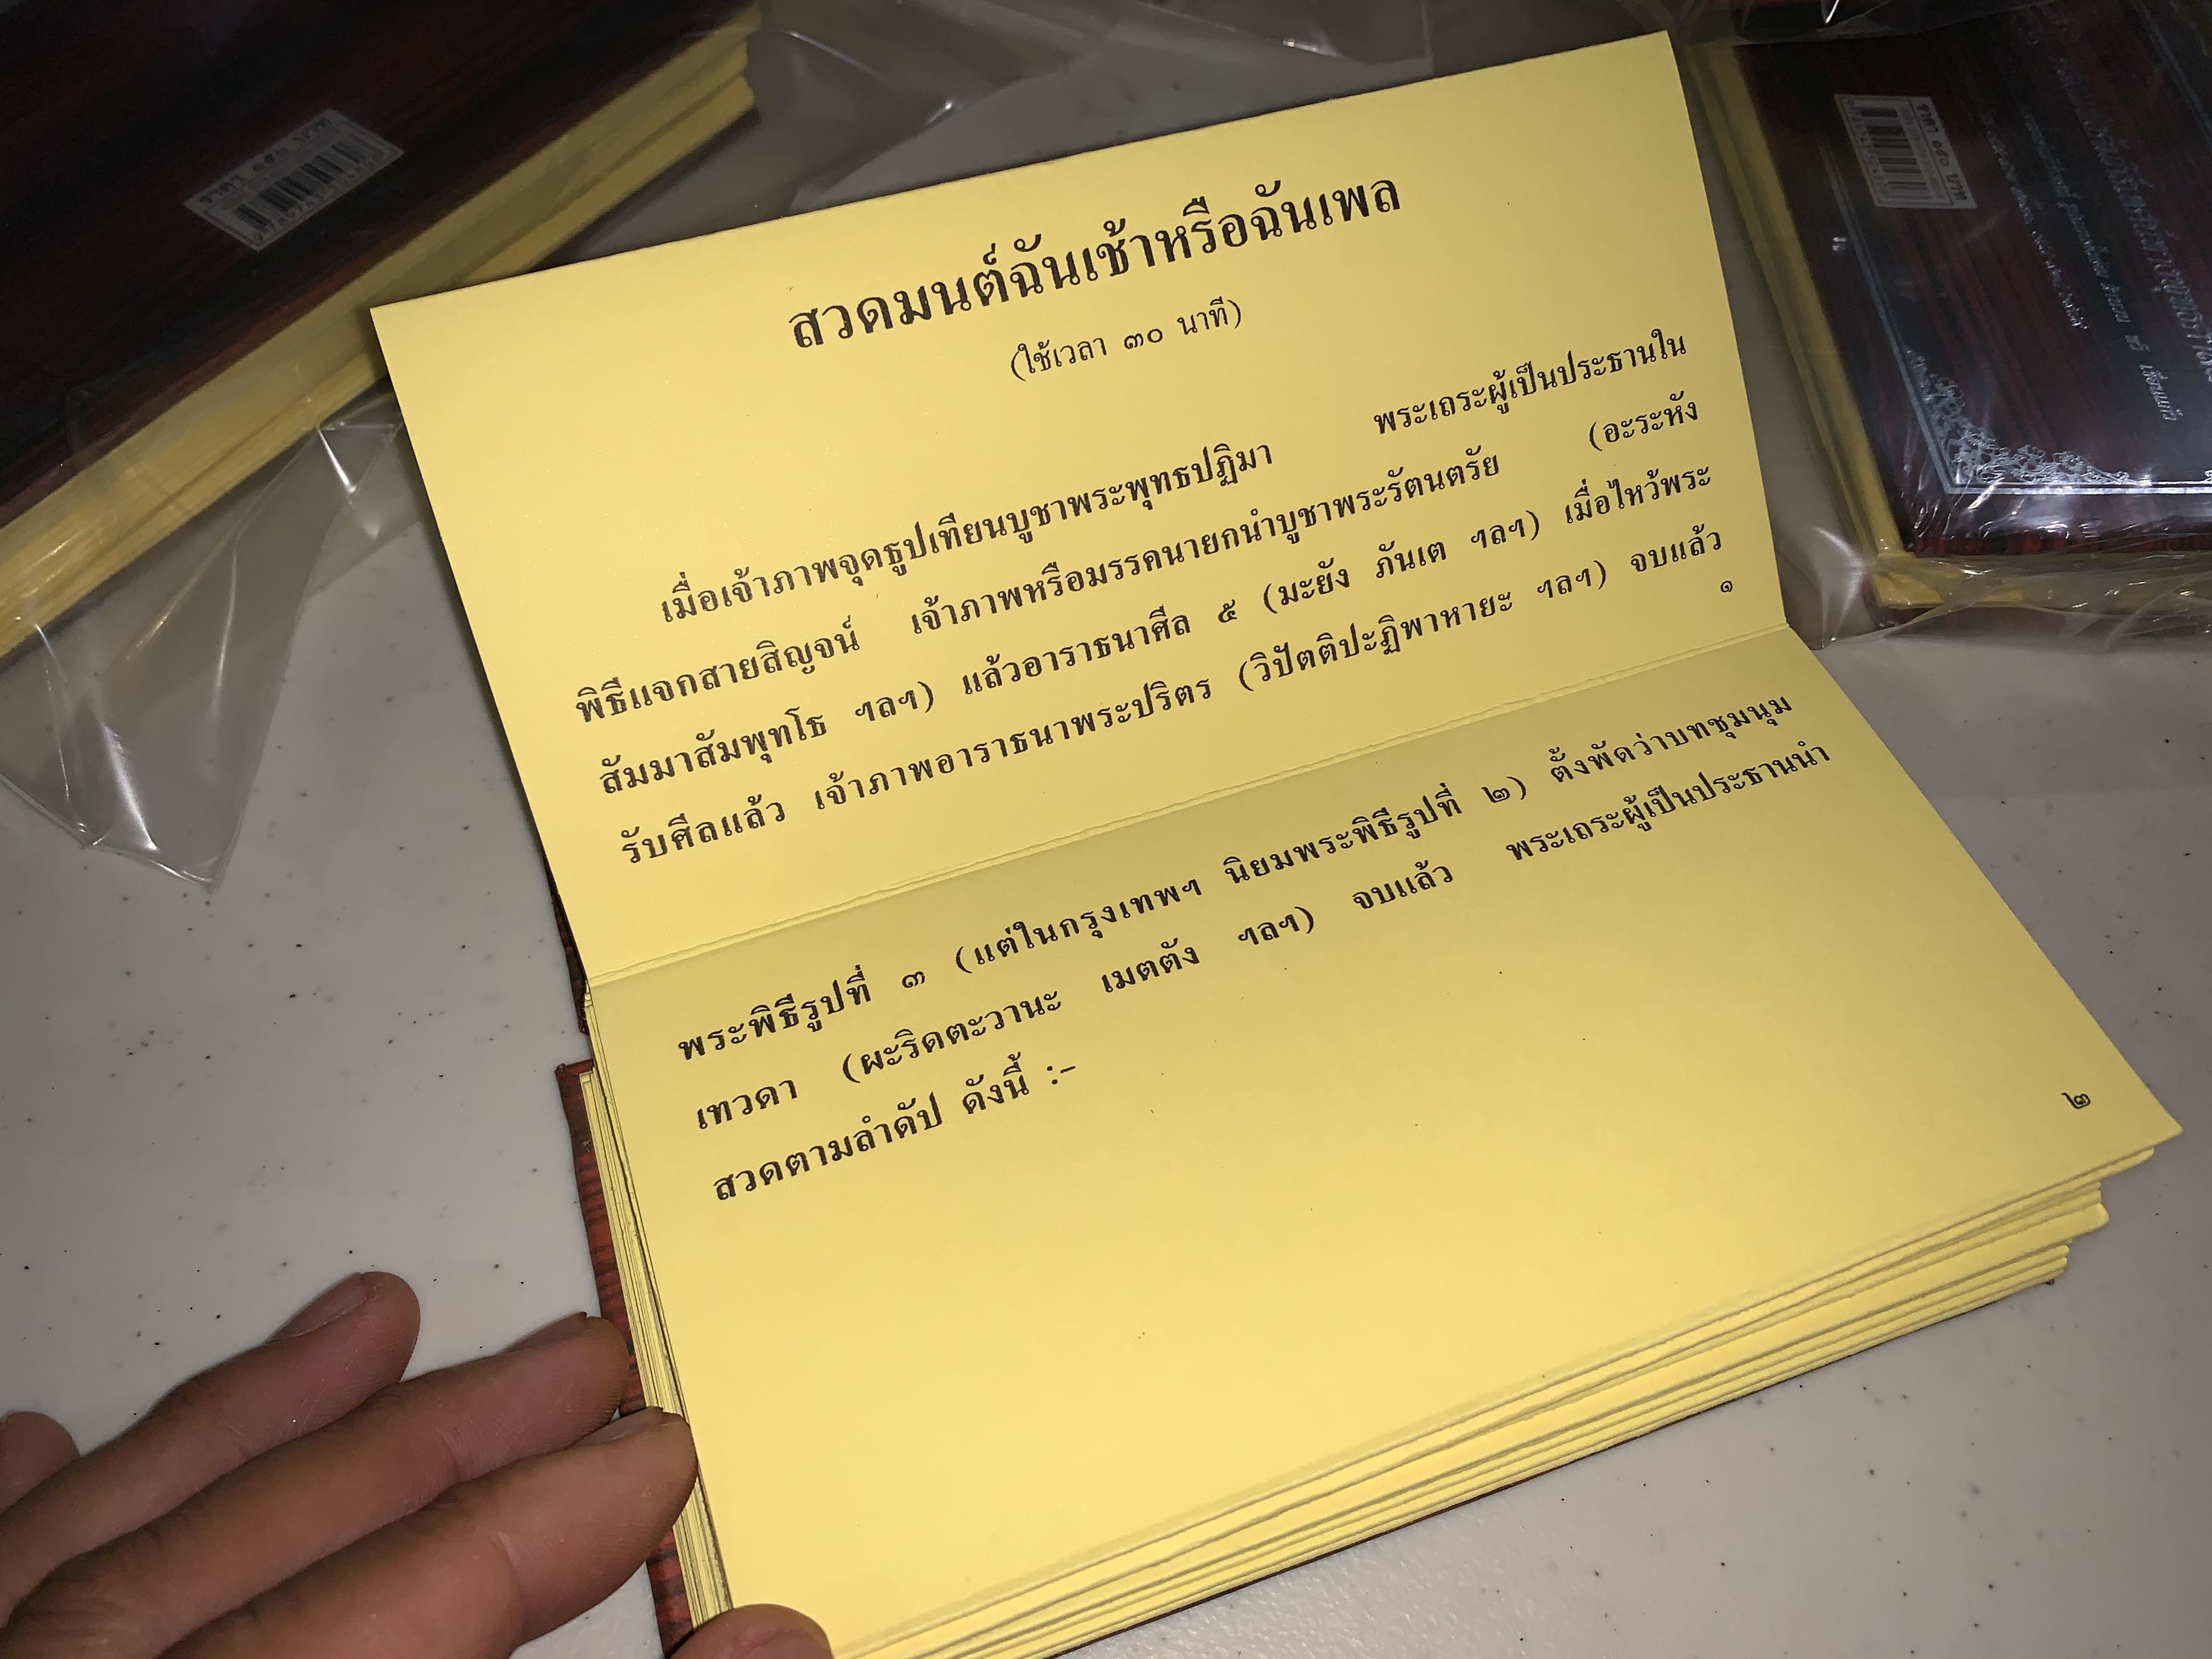 สวดมนต์ฉันเช้าหรือฉันเพล
(ใช้เวลา ๓๐ นาที)
เมื่อเจ้าภาพจุดธูปเทียนบูชาพระพุทธปฏิมา พระเถระผู้เป็นประธานใน
พิธีแจกสายสิญจน์ เจ้าภาพหรือมรรคนายกนำบูชาพระรัตนตรัย (อะระหัง
สัมมาสัมพุทโธ ฯลฯ) แล้วอาราธนาศีล ๕ (มะยัง ภันเต ฯลฯ) เมื่อไหว้พระ
รับศีลแล้ว เจ้าภาพอาราธนาพระปริตร (วิปัตติปะฏิพาหายะ ฯลฯ) จบแล้ว
๑
พระพิธีรูปที่ ๓ (แต่ในกรุงเทพฯ นิยมพระพิธีรูปที่ ๒) ตั้งพัดว่าบทชุมนุม
เทวดา (ผะริตตะวานะ เมตตัง ฯลฯ) จบแล้ว พระเถระผู้เป็นประธานนำ
สวดตามลำดับ ดังนี้ :-
๒
ราคา ๑๕๐ บาท
ราคา ๑๕๐ บาท